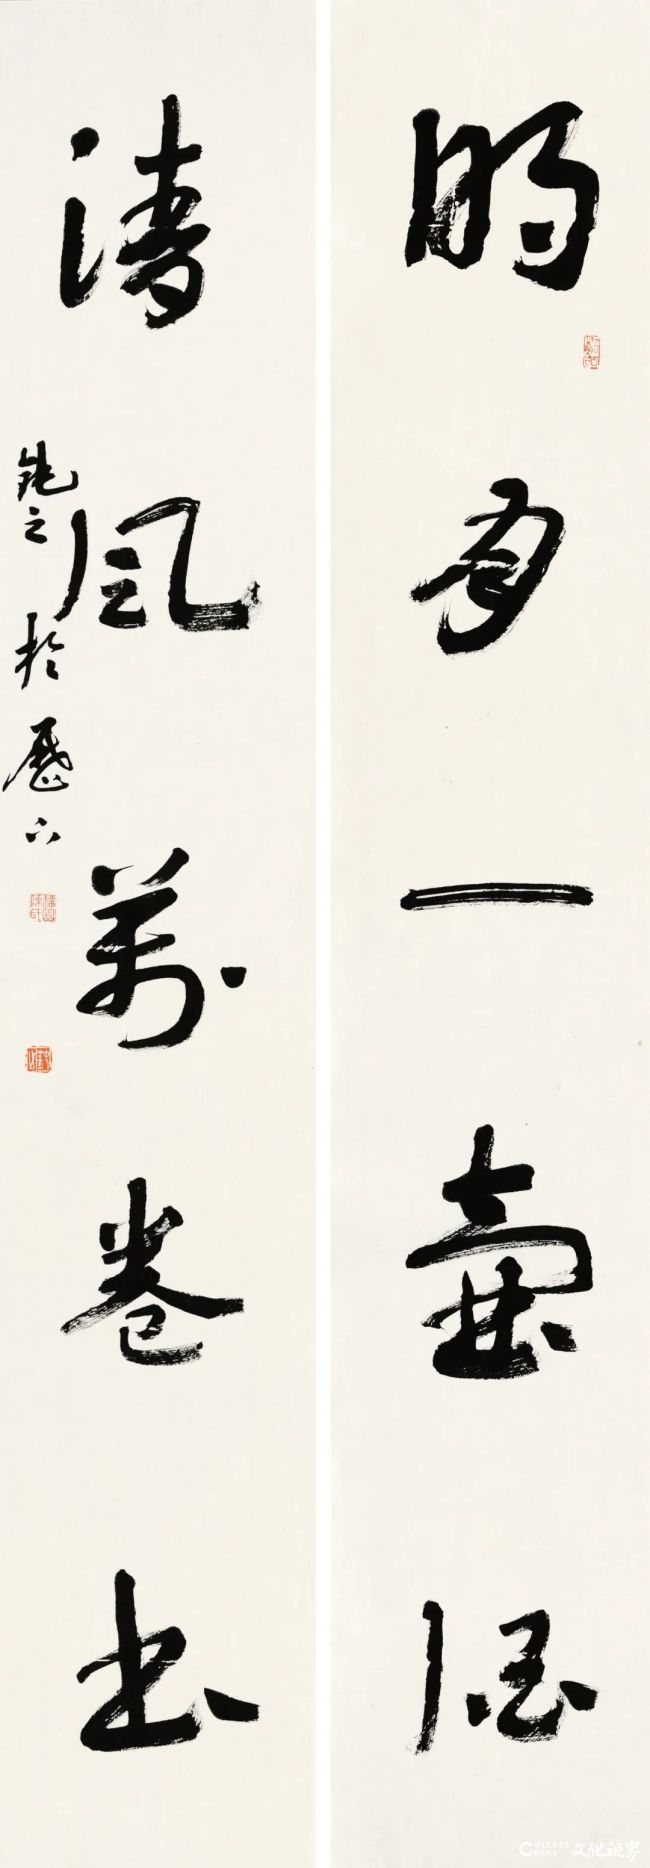 明月一壶酒
清风万卷书
钝之于历下
CULTURE CHINA 文化视界